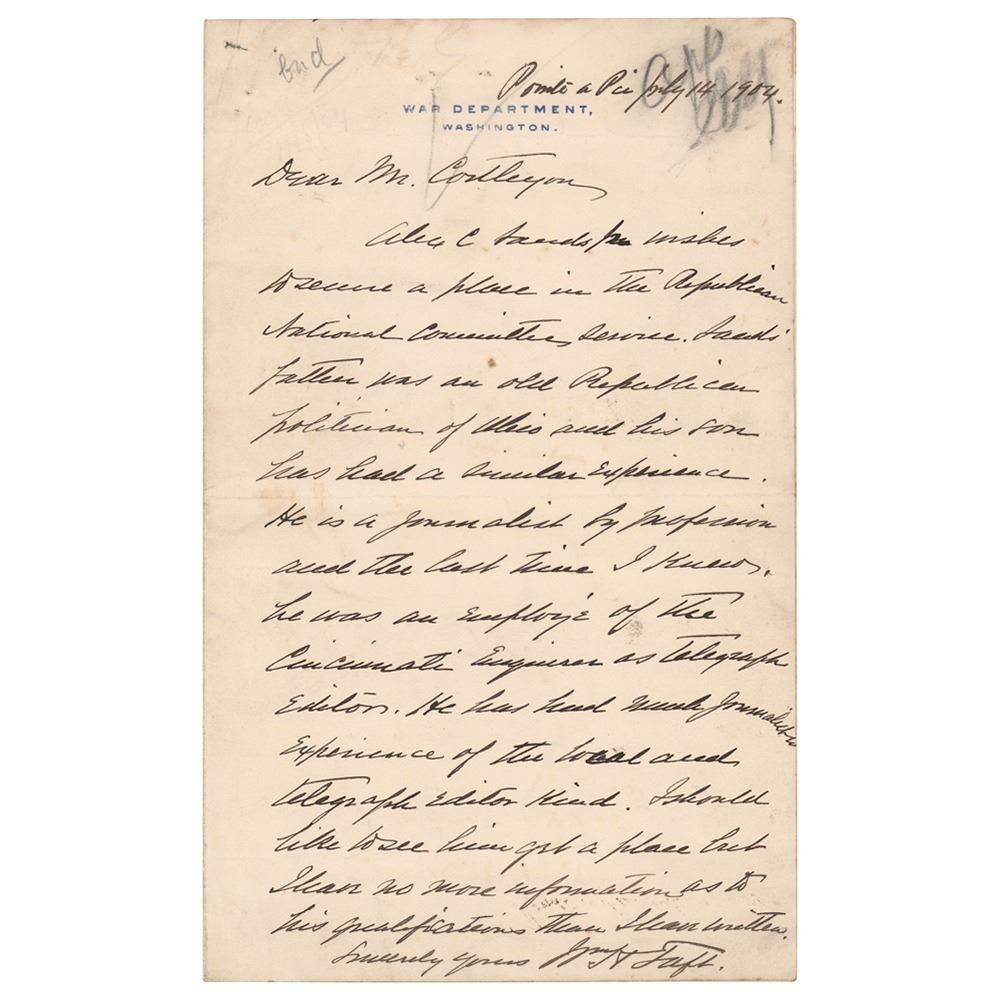 End
Pointe a Pic July 14 1904.
WAR DEPARTMENT,
WASHINGTON.
Dear Mr. Cortleyou,
Alex C Sands Jr wishes
to secure a place in the Republican
National Committee, service. Sands'
father was an old Republican
politician of Ohio and his son
has had a similar experience.
He is a journalist by profession
and the last time I knew,
he was an employé of the
Cincinnati Enquirer as telegraph
Editor. He has had much journalistic
experience of the local and
telegraph editor kind. I should
like to see him get a place but
I have no more information as to
his qualifications than I have written.
Sincerely yours Wm H Taft.